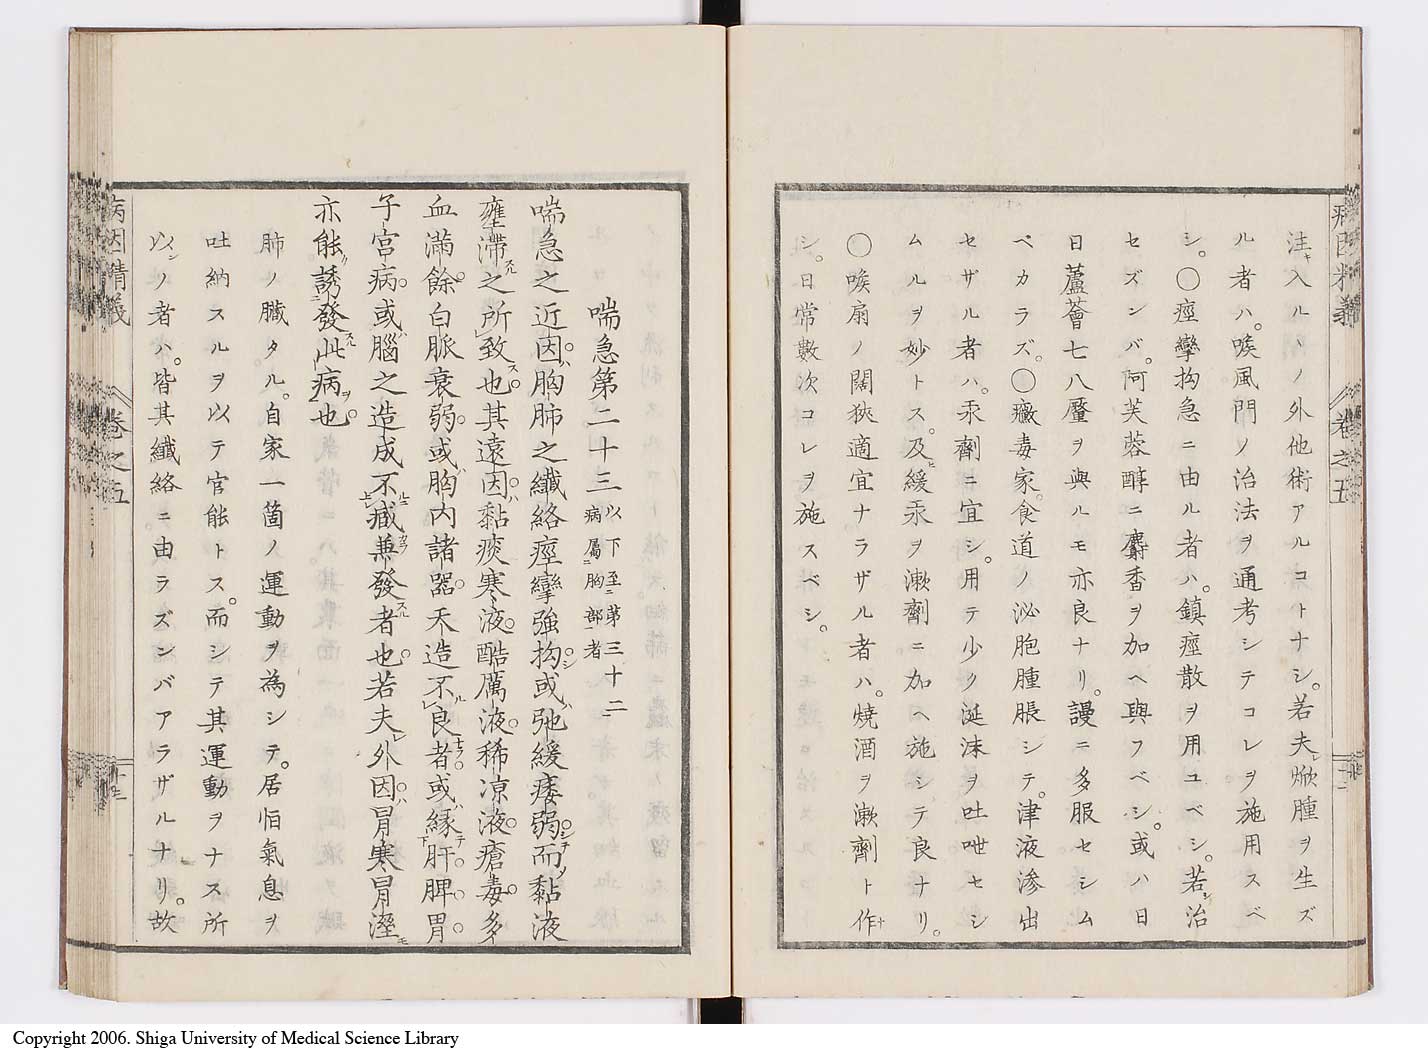 注キ入ルハノ外他術アルコトナシ。若夫レ焮腫ヲ生ズ
ル者ハ。喉風門ノ治法ヲ通考シテコレヲ施用スベ
シ。〇痙攣拘急ニ由ル者ハ。鎮痙散ヲ用ユベシ。若シ治
セズンバ。阿芙蓉醇ニ麝香ヲ加ヘ與フベシ。或ハ日
日蘆薈七八釐ヲ與ルモ亦良ナリ。謾ニ多服セシム
ベカラズ。〇黴毒家。食道ノ泌胞腫脹シテ。津液滲出
セザル者ハ。汞劑ニ宜シ。用テ少ク涎沫ヲ吐呭セシ
ムルヲ妙トス。及ヒ緩汞ヲ漱劑ニ加ヘ施シテ良ナリ。
〇喉扇ノ闊狹適宜ナラザル者ハ。焼酒ヲ漱劑ト作ナ
シ。日常數次コレヲ施スベシ。
病因精義 卷之五
喘急第二十三 以下至ニ第三十二ニ病屬ニ胸部ニ者
喘急之近因。胸肺之纖絡痙攣強拘或弛緩痿弱而黏液
壅滞之所致也其遠因黏痰寒液酷厲液稀凉液瘡毒多
血滿餘白脈衰弱或胸内諸器天造不良者或縁肝脾胃
子宮病或腦之造成不臧兼發者也若夫外因冒寒冒溼
亦能誘發此病也
肺ノ臓タル。自家一箇ノ運動ヲ為シテ。居恒氣息ヲ
吐納スルヲ以テ官能トス。而シテ其運動ヲナス所
以ンノ者ハ。皆其纖絡ニ由ラズンバアラザルナリ。故
病因精義 卷之五
Copyright 2006. Shiga University of Medical Science Library